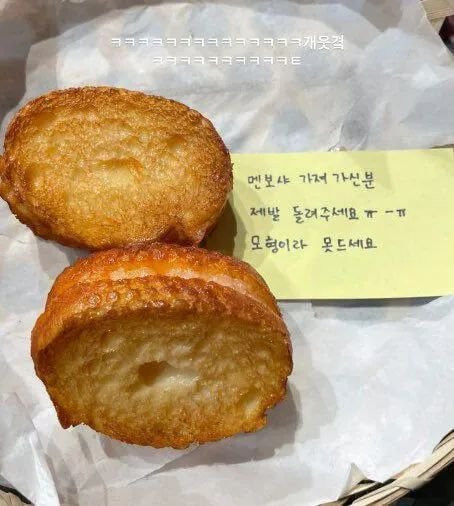 ㅋㅋㅋㅋㅋㅋㅋㅋㅋㅋㅋㅋㅋㅋ개웃겈
ㅋㅋㅋㅋㅋㅋㅋㅋㅋㅋㅌ
멘보샤 가져 가신분
제발 돌려주세요 ㅠ-ㅠ
모형이라 못드세요